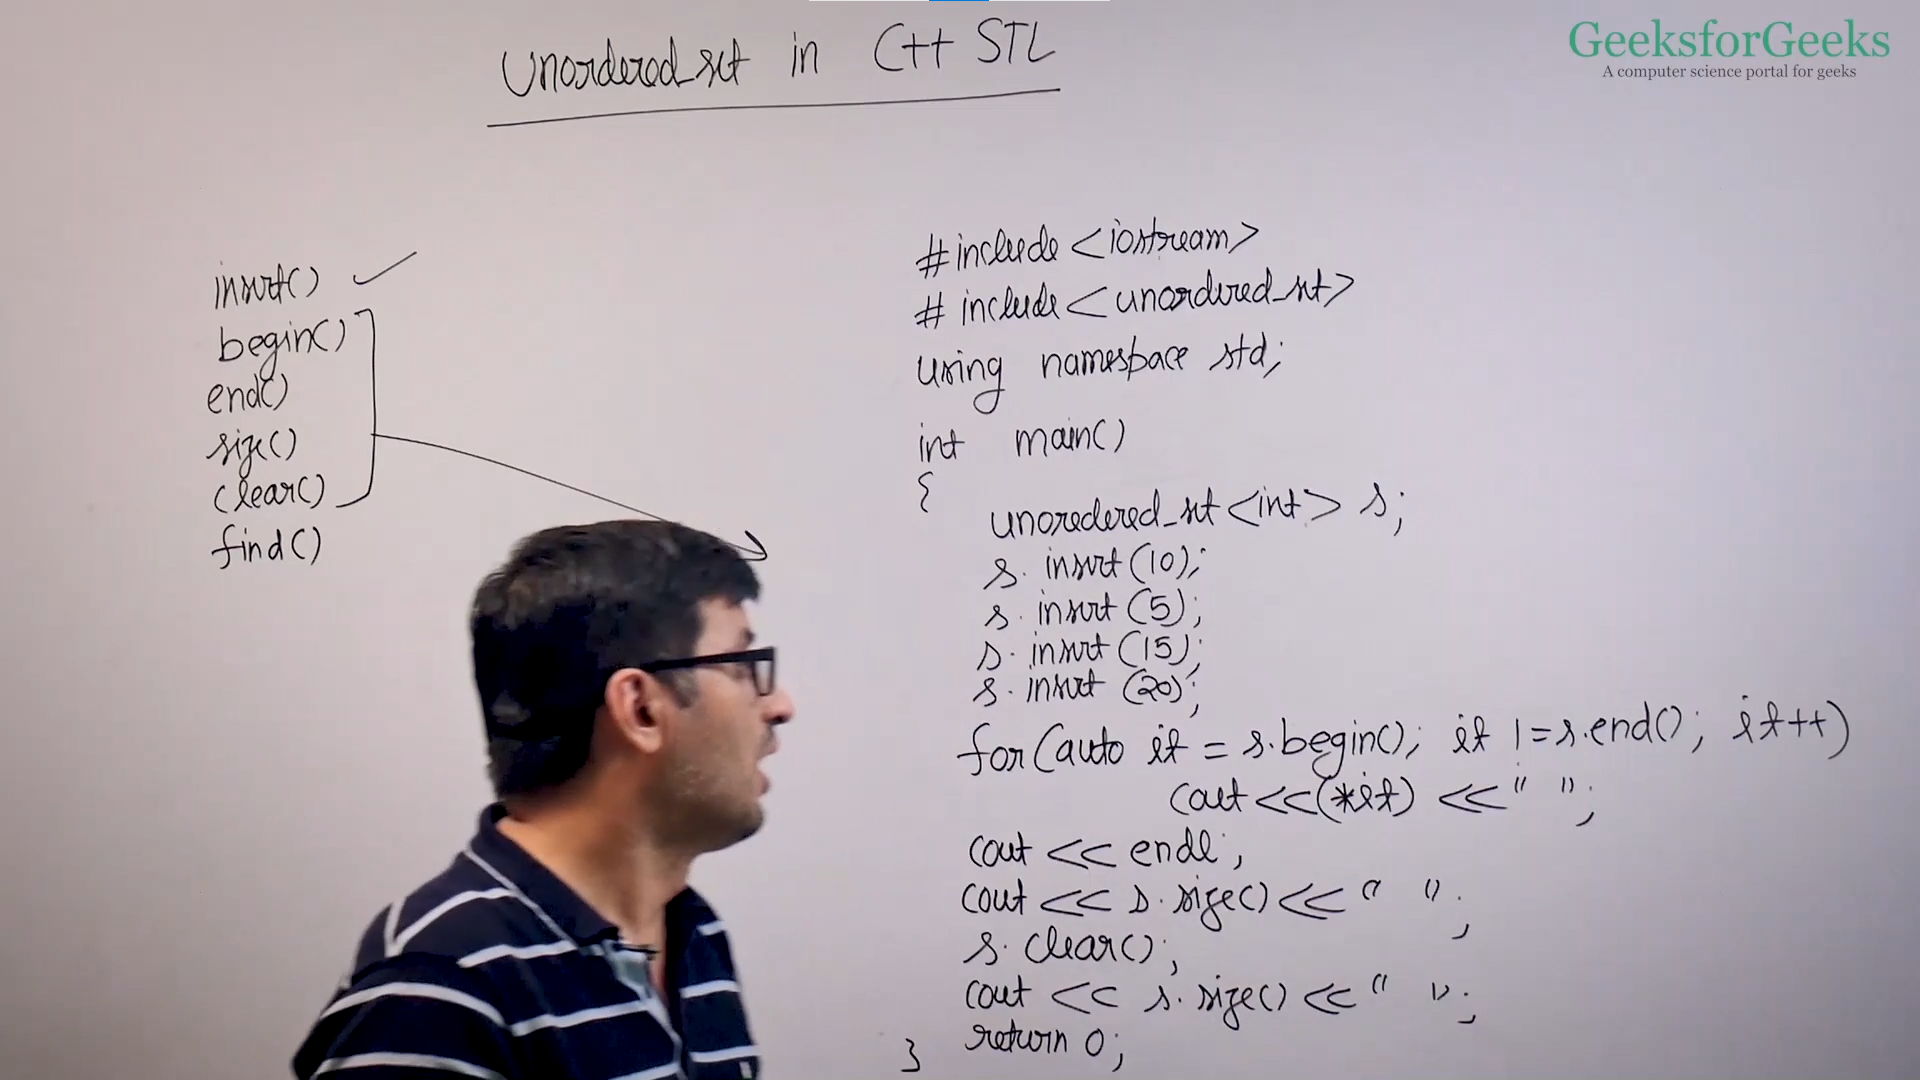 Unordered_set in C++ STL
GeeksforGeeks
A computer science portal for geeks
insert()
begin()
end()
size()
clear()
find()
#include <iostream>
# include <unordered_set>
using namespace std;
int main()
{
unoredered_set <int> s;
s. insert (10);
s. insert (5);
s. insert (15);
s. insert (20);
for (auto it = s.begin(); it != s.end(); it++)
cout <<(*it) <<" ";
cout << endl;
cout << s.size() << " ";
s. clear();
cout << s. size() << " ";
return 0;
}